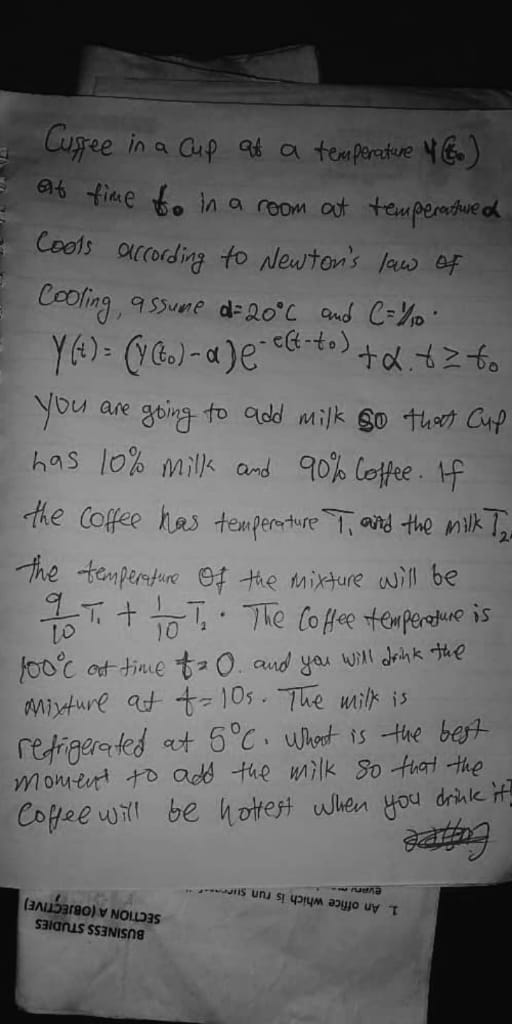 Cuffee in a Cup at a temperature Y(t₀)
at time t₀ in a room at temperature α
Cools according to Newton's law of
Cooling, assume α=20°C and C=1/10.
Y(t) = (Y(t₀)-α)e^-c(t-t₀) + α. t ≥ t₀
You are going to add milk so that Cup
has 10% milk and 90% Coffee. If
the Coffee has temperature T₁ and the milk T₂
the temperature of the mixture will be
9/10 T₁ + 1/10 T₂. The Coffee temperature is
100°C at time t=0. and you will drink the
mixture at t=10s. The milk is
refrigerated at 5°C. What is the best
moment to add the milk so that the
Coffee will be hottest when you drink it?
1. An office which is run
SECTION A (OBJECTIVE)
BUSINESS STUDIES